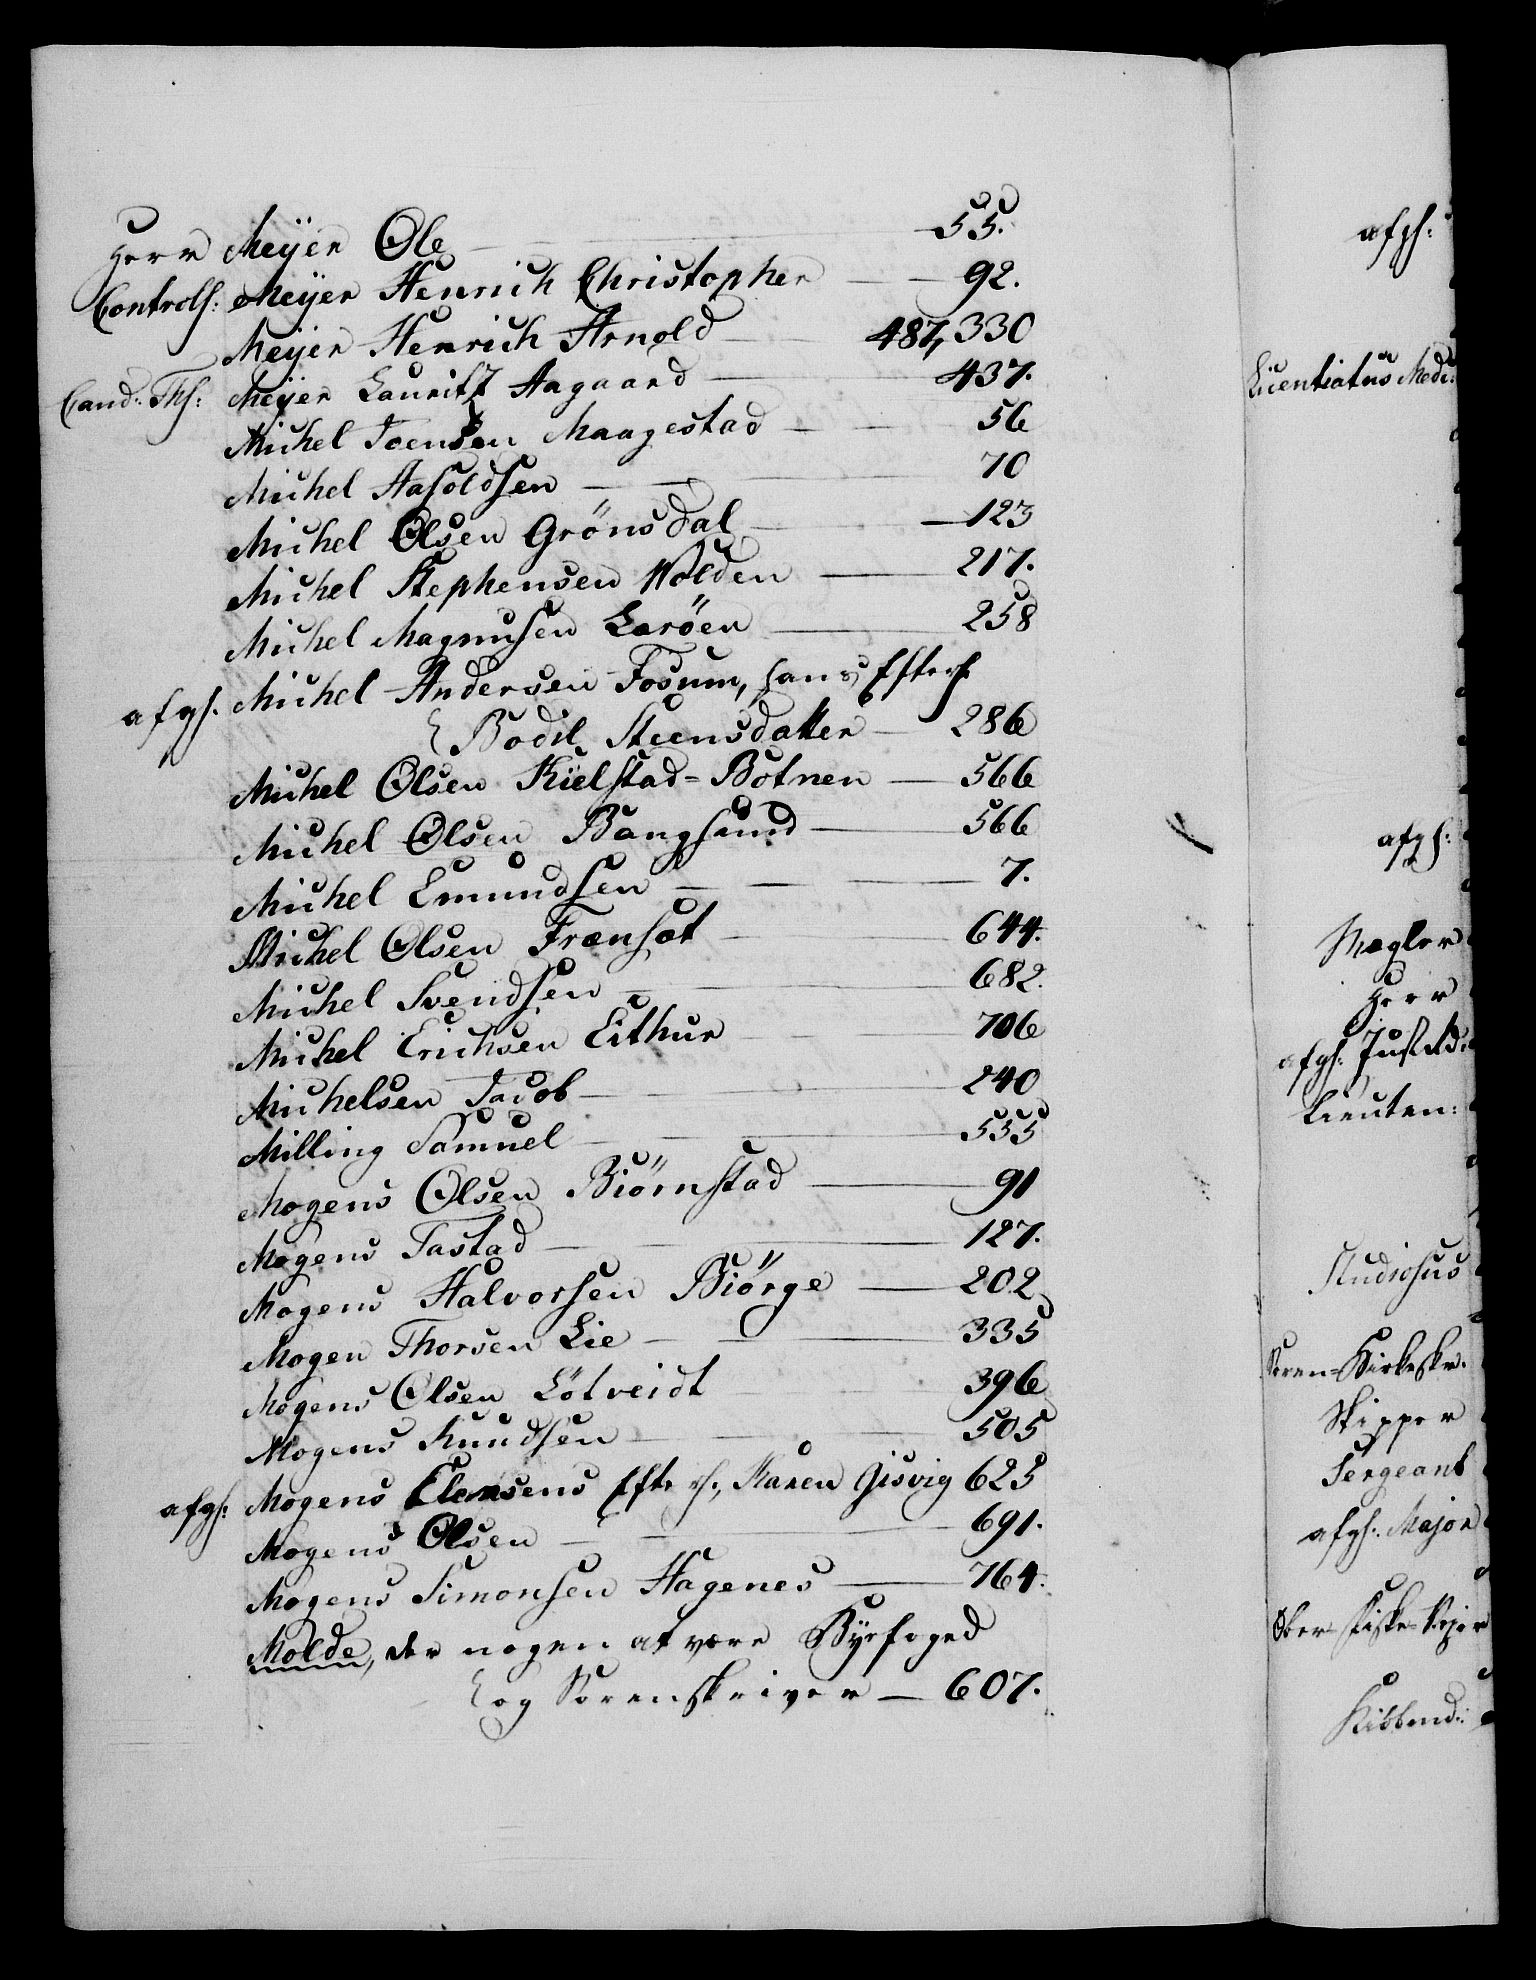 Herr Meÿer Ole 55.
Controll: Meÿer Henrich Christopher 92.
Meÿer Henrich Arnold 487, 330
Cand: Th: Meÿer Lauritz Aagaard 437.
Michel Joensen Maagestad 56
Michel Aasoldsen 70
Michel Olsen Grönsdal 123
Michel Stephensen Wolden 217.
Michel Magnusen Laröen 258
afgh. Michel Andersen Fosum, hans Efterh
Bodil Steensdatter 286
Michel Olsen Kielstad-Botnen 566
Michel Olsen Bangsund 566
Michel Emundsen 7.
Michel Olsen Frænsæt 644.
Michel Svendsen 682.
Michel Erichsen Eithun 706
Michelsen Jacob 240
Milling Samuel 555
Mogens Olsen Biörnstad 91
Mogens Tastad 127.
Mogens Halvorsen Biörge 202
Mogen Thorsen Lie 335
Mogens Olsen Lötveidt 396
Mogens Knudsen 505
afgh: Mogens Clemsens Efterh:, Karen Gisvig 625
Mogens Olsen 691.
Mogens Simonsen Hagenes 764.
Molde, der nogen at være Byefoged
og Sorenskriver 607.
afgh:
Licentiatus Medi:
afgh:
Mægler
Herr
afgh: Just Rd:
Lieuten:
Studiosus
Soren-Kirkeskr.
Skipper
Sergeant
afgh: Major
Ober-Fiske-
Kiøbmd: